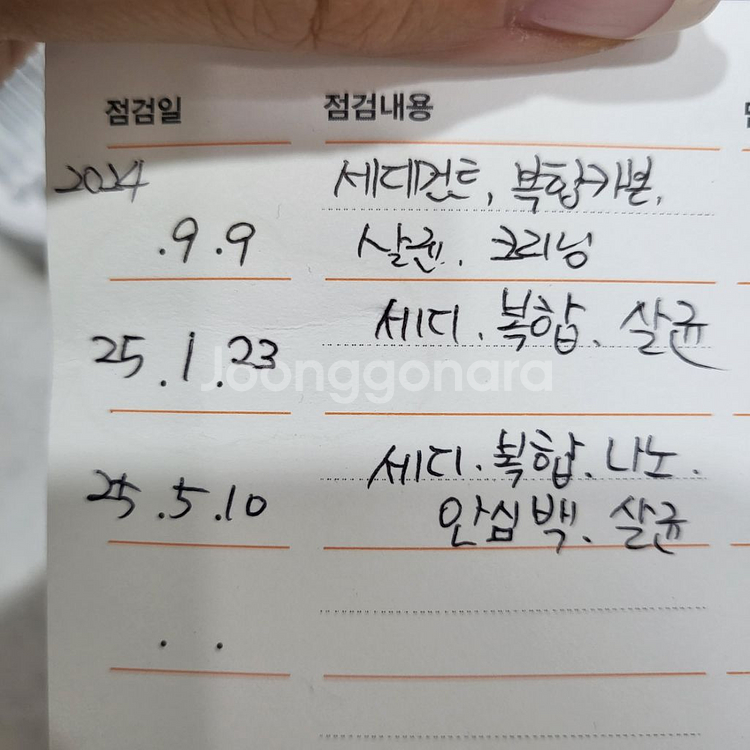 점검일 점검내용
2024 세디먼트, 복합카본,
.9.9 살균. 크리닝
25.1.23 세디. 복합. 살균
Joonggonara
세디. 복합. 나노.
25.5.10 안심백. 살균
. .